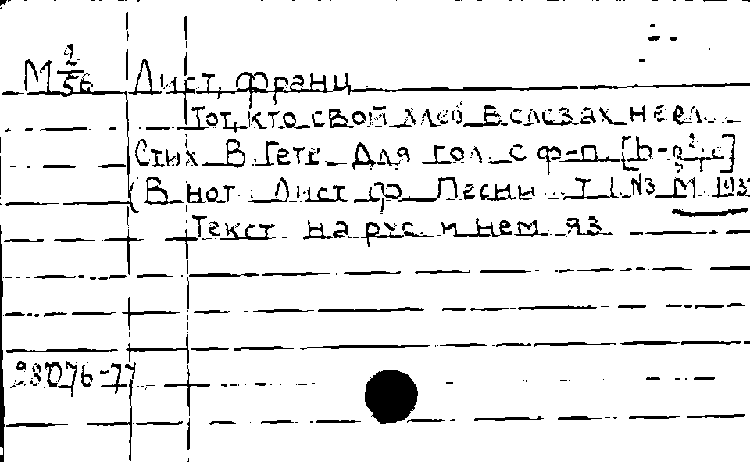 М 2/56 Лист, франц
Тот, кто свой хлеб в слезах не ел.
Стих. В. Гете. Для гол. с ф-п.
(В нот. Лист Ф. Песни. Т 1. №3 М. 193
Текст на рус. и нем яз.
28076-77